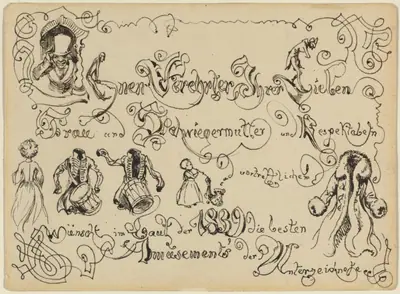 Ihnen Verehrter, Ihrer Lieben
Frau und Schwiegermutter und Respektabeln
vortrefflichen
Wünscht im Jaul der 1839 die besten
Amusements der Unterzeichnete